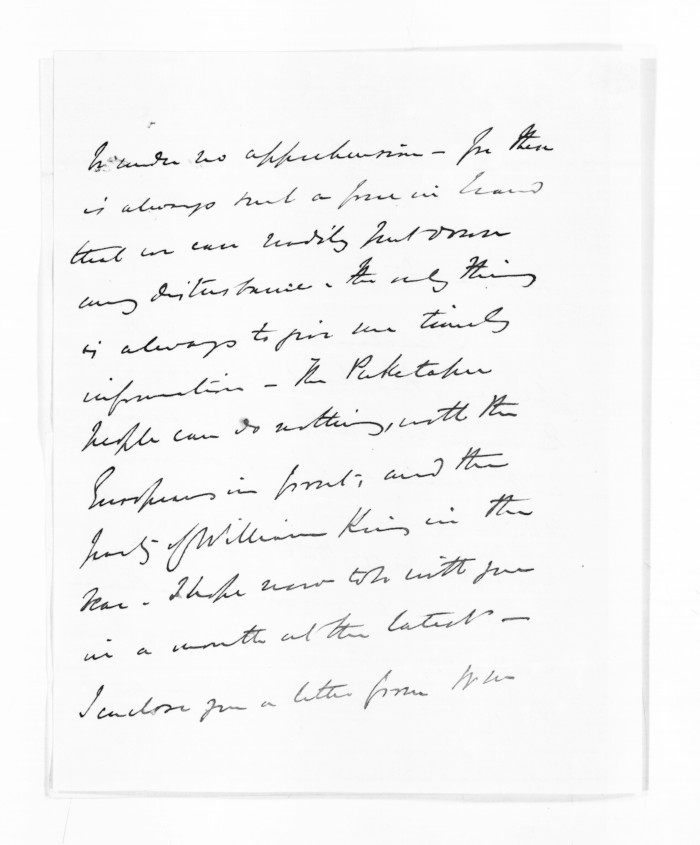 be under no apprehension - for there
is always such a force in hand
that we can readily put down
any disturbance. The only thing
is always to give me timely
information - The Puketapu
people can do nothing, with the
Europeans in front, and the
party of William King in the
rear. I hope now to be with you
in a month at the latest -
I enclose you a letter from Wm